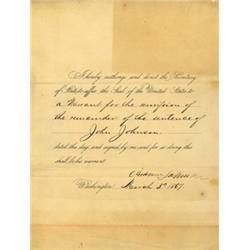 I hereby authorize and direct the Secretary
of State to affix the Seal of the United States to
a Warrant for the remission of
the remainder of the sentence of
John Johnson
dated this day and signed by me and for so doing this
shall be his warrant.
Andrew Johnson
Washington, March 2 1867.